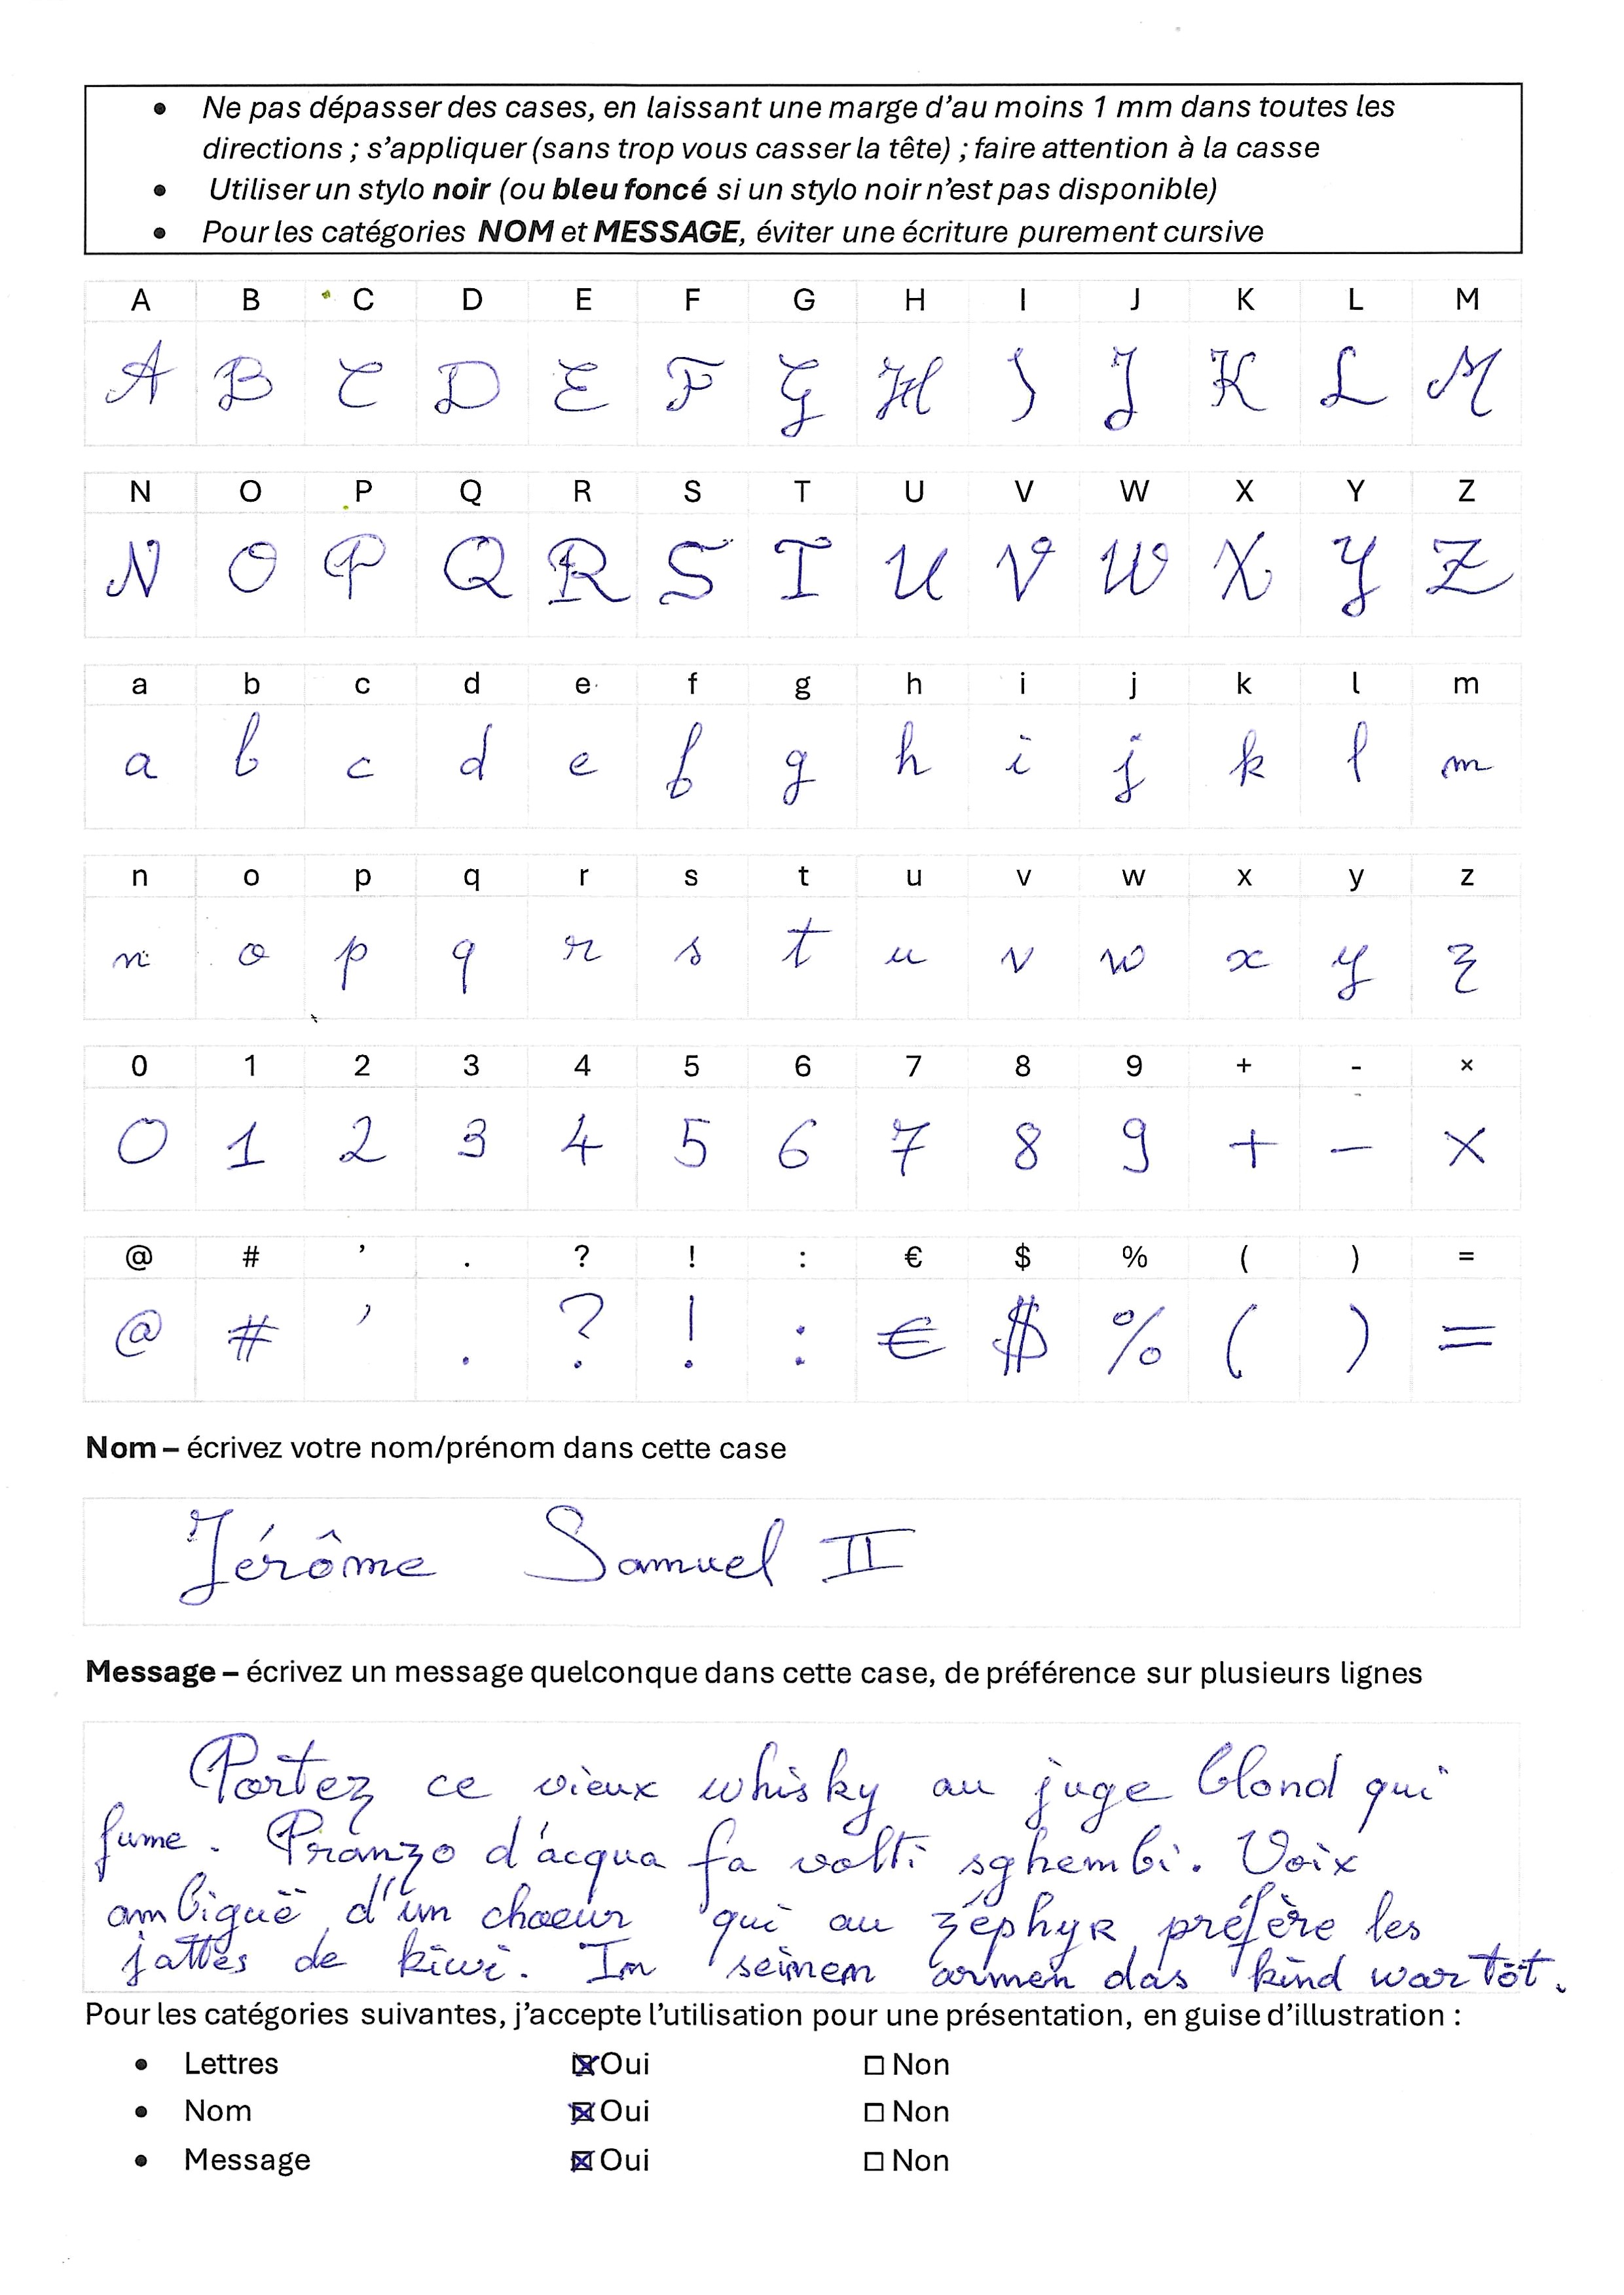 • Ne pas dépasser des cases, en laissant une marge d'au moins 1 mm dans toutes les
directions ; s'appliquer (sans trop vous casser la tête) ; faire attention à la casse
• Utiliser un stylo noir (ou bleu foncé si un stylo noir n'est pas disponible)
• Pour les catégories NOM et MESSAGE, éviter une écriture purement cursive
A B C D E F G H I J K L M
A B C D E F G H I J K L M
N O P Q R S T U V W X Y Z
N O P Q R S T U V W X Y Z
a b c d e f g h i j k l m
a b c d e f g h i j k l m
n o p q r s t u v w x y z
n o p q r s t u v w x y z
0 1 2 3 4 5 6 7 8 9 + - ×
0 1 2 3 4 5 6 7 8 9 + - ×
@ # ’ . ? ! : € $ % ( ) =
@ # ’ . ? ! : € $ % ( ) =
Nom – écrivez votre nom/prénom dans cette case
Jérôme Samuel II
Message – écrivez un message quelconque dans cette case, de préférence sur plusieurs lignes
Portez ce vieux whisky au juge blond qui
fume. Pranzo d'acqua fa volti sghembi. Voix
ambiguë d'un choeur qui au zéphyr préfère les
jattes de kiwi. In seinem armen das kind war tot.
Pour les catégories suivantes, j'accepte l'utilisation pour une présentation, en guise d'illustration :
• Lettres ☒ Oui ☐ Non
• Nom ☒ Oui ☐ Non
• Message ☒ Oui ☐ Non